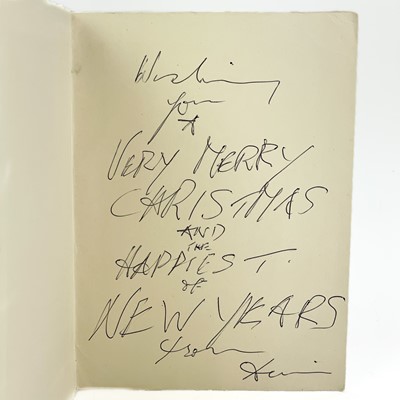 Wishing
you
A
VERY MERRY
CHRISTMAS
AND
THE
HAPPIEST.
of
NEW YEARS
from